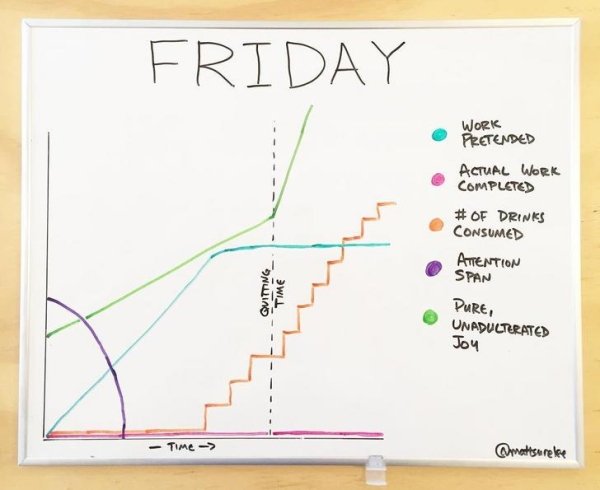 FRIDAY
WORK
PRETENDED
ACTUAL WORK
COMPLETED
# OF DRINKS
CONSUMED
ATTENTION
SPAN
PURE,
UNADULTERATED
JOY
QUITTING
TIME
— TIME →
@mattsurelee